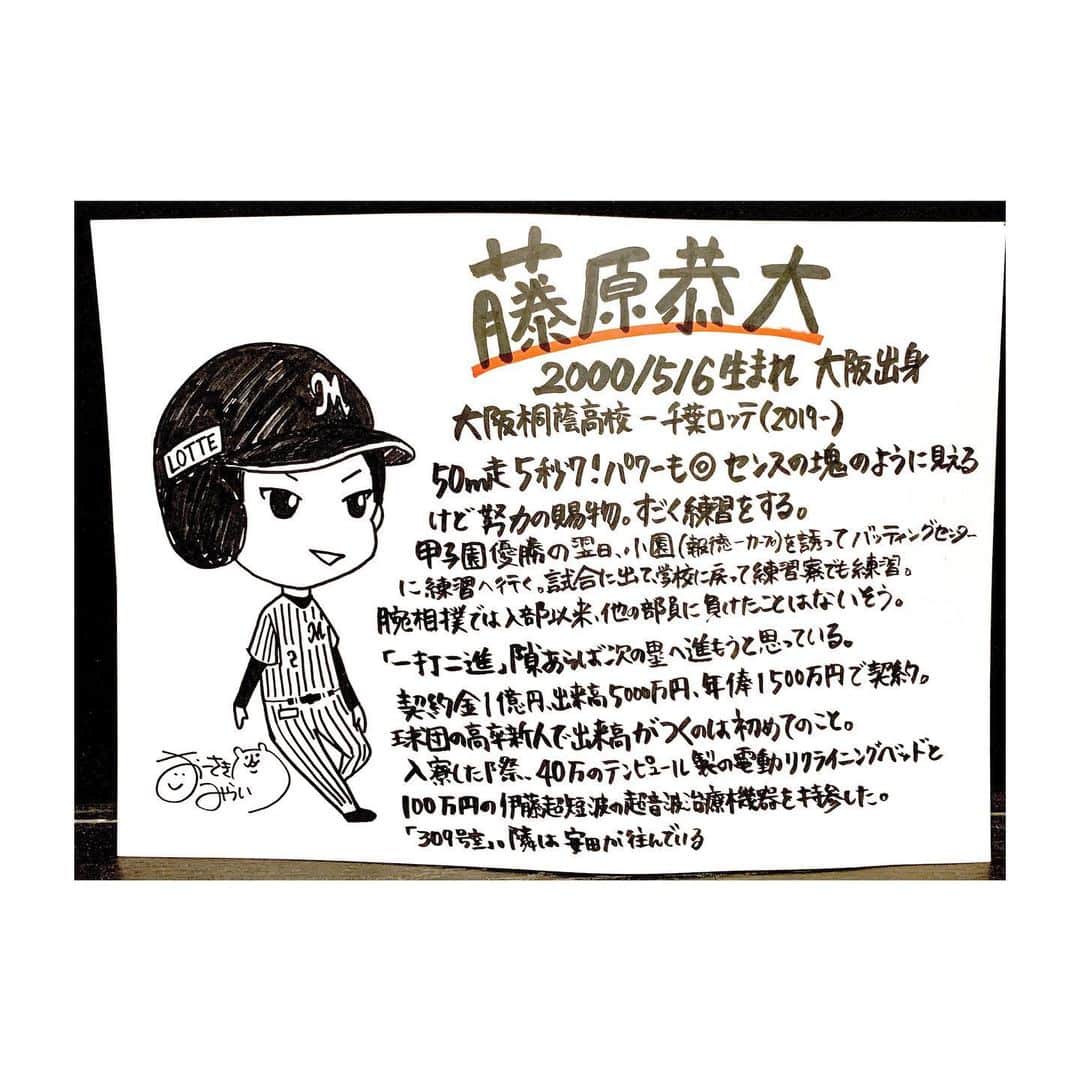 藤原恭大
2000/5/6生まれ 大阪出身
大阪桐蔭高校ー千葉ロッテ(2019-)
50m走5秒7!パワーも◎センスの塊のように見える
けど努力の賜物。すごく練習をする。
甲子園優勝の翌日、小園(報徳ーカープ)を誘ってバッティングセンター
に練習へ行く。試合に出て、学校に戻って練習寮でも練習。
腕相撲では入部以来、他の部員に負けたことはないそう。
「一打二進」隙あらば次の塁へ進もうと思っている。
契約金1億円、出来高5000万円、年俸1500万円で契約。
球団の高卒新人で出来高がつくのは初めてのこと。
入寮した際、40万のテンピュール製の電動リクライニングベッドと
100万円の伊藤超短波の超音波治療機器を持参した。
「309号室」。隣は安田が住んでいる
M
LOTTE
M
2
おーさき
みらい